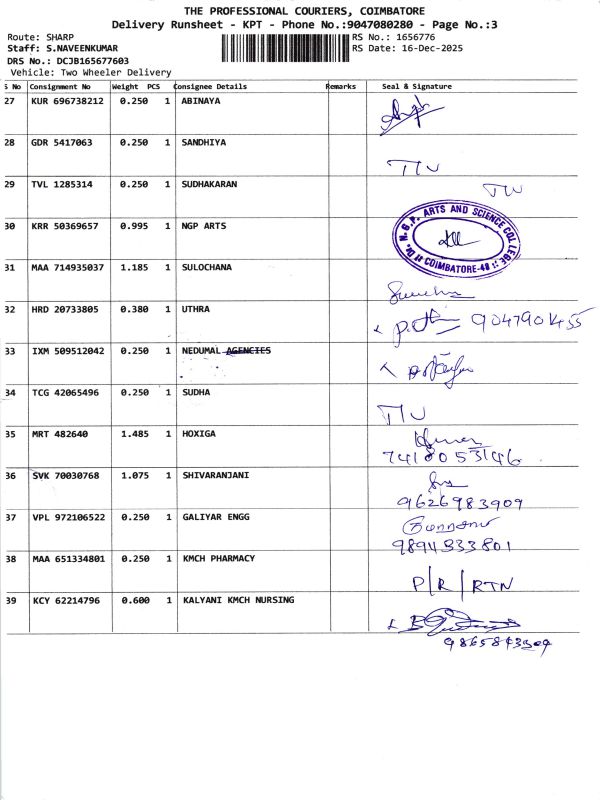 THE PROFESSIONAL COURIERS, COIMBATORE
Delivery Runsheet - KPT - Phone No.:9047080280 - Page No.:3
Route: SHARP RS No.: 1656776
Staff: S.NAVEENKUMAR RS Date: 16-Dec-2025
DRS No.: DCJB165677603
Vehicle: Two Wheeler Delivery
S No Consignment No Weight PCS Consignee Details Remarks Seal & Signature
27 KUR 696738212 0.250 1 ABINAYA
28 GDR 5417063 0.250 1 SANDHIYA
29 TVL 1285314 0.250 1 SUDHAKARAN
30 KRR 50369657 0.995 1 NGP ARTS
Dr. N.G.P. ARTS AND SCIENCE COLLEGE
COIMBATORE-48
31 MAA 714935037 1.185 1 SULOCHANA
32 HRD 20733805 0.380 1 UTHRA
9047901455
33 IXM 509512042 0.250 1 NEDUMAL AGENCIES
34 TCG 42065496 0.250 1 SUDHA
35 MRT 482640 1.485 1 HOXIGA
7418053146
36 SVK 70030768 1.075 1 SHIVARANJANI
9626983909
37 VPL 972106522 0.250 1 GALIYAR ENGG
38 MAA 651334801 0.250 1 KMCH PHARMACY
P/R/RTN
39 KCY 62214796 0.600 1 KALYANI KMCH NURSING